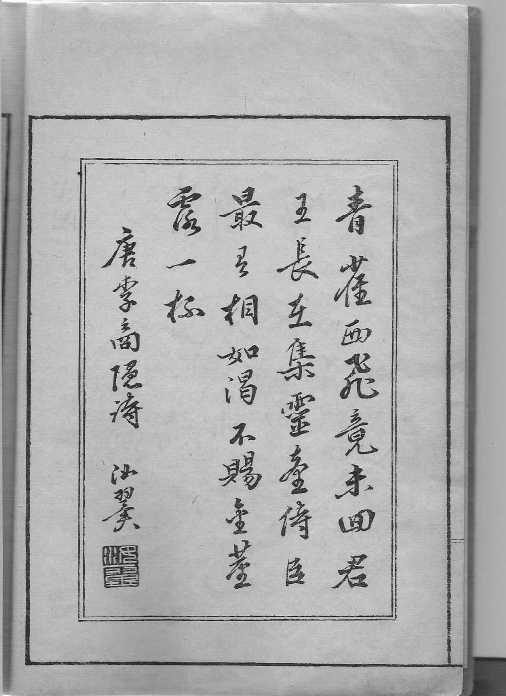 青雀西飛竟未回君
王長在集靈臺侍臣
最有相如渴不賜金莖
露一杯
唐李商隱詩